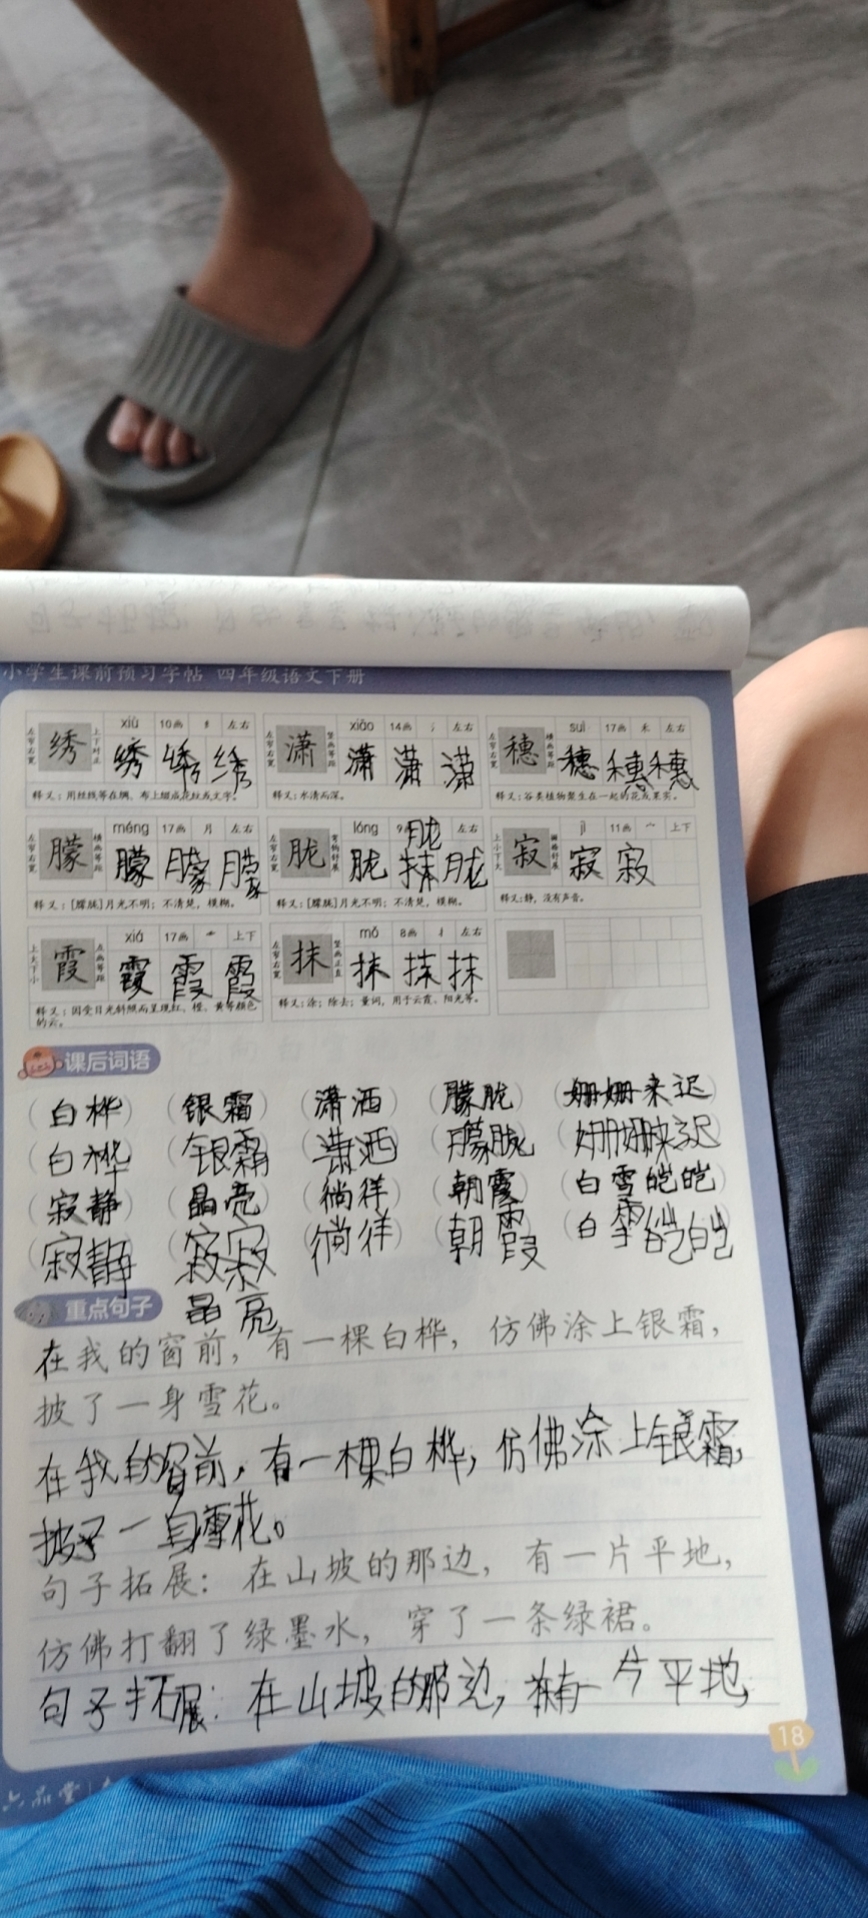 小学生课前预习字帖 四年级语文下册
绣 xiù 10画 纟 左右 左窄右宽 上下对正 绣 绣 绣
释义：用丝线等在绸、布上缀成花纹或文字。
潇 xiāo 14画 氵 左右 左窄右宽 竖画等距 潇 潇 潇
释义：水清而深。
穗 suì 17画 禾 左右 左窄右宽 横画等距 穗 穗 穗
释义：谷类植物聚生在一起的花或果实。
朦 méng 17画 月 左右 左窄右宽 横画等距 朦 朦 朦
释义：[朦胧]月光不明；不清楚，模糊。
胧 lóng 9 左右 左窄右宽 胧 胧 抹 胧
释义：[朦胧]月光不明；不清楚，模糊。
寂 jì 11画 宀 上下 上小下大 寂 寂
释义：静，没有声音。
霞 xiá 17画 上下 上大下小 霞 霞 霞
释义：因受日光斜照而呈现红、橙、黄等颜色
的云。
抹 mǒ 8画 扌 左右 左窄右宽 竖画正直 抹 抹 抹
释义：涂；除去；量词，用于云霞、阳光等。
课后词语
（白桦）（银霜）（潇洒）（朦胧）（姗姗来迟）
（白桦）（银霜）（潇洒）（朦胧）（姗姗来迟）
（寂静）（晶亮）（徜徉）（朝霞）（白雪皑皑）
（寂静）（寂寂）（徜徉）（朝霞）（白雪皑皑）
晶亮
重点句子
在我的窗前，有一棵白桦，仿佛涂上银霜，
披了一身雪花。
在我的窗前，有一棵白桦，仿佛涂上银霜，
披了一身雪花。
句子拓展：在山坡的那边，有一片平地，
仿佛打翻了绿墨水，穿了一条绿裙。
句子拓展：在山坡的那边，有一片平地，
18
六品堂